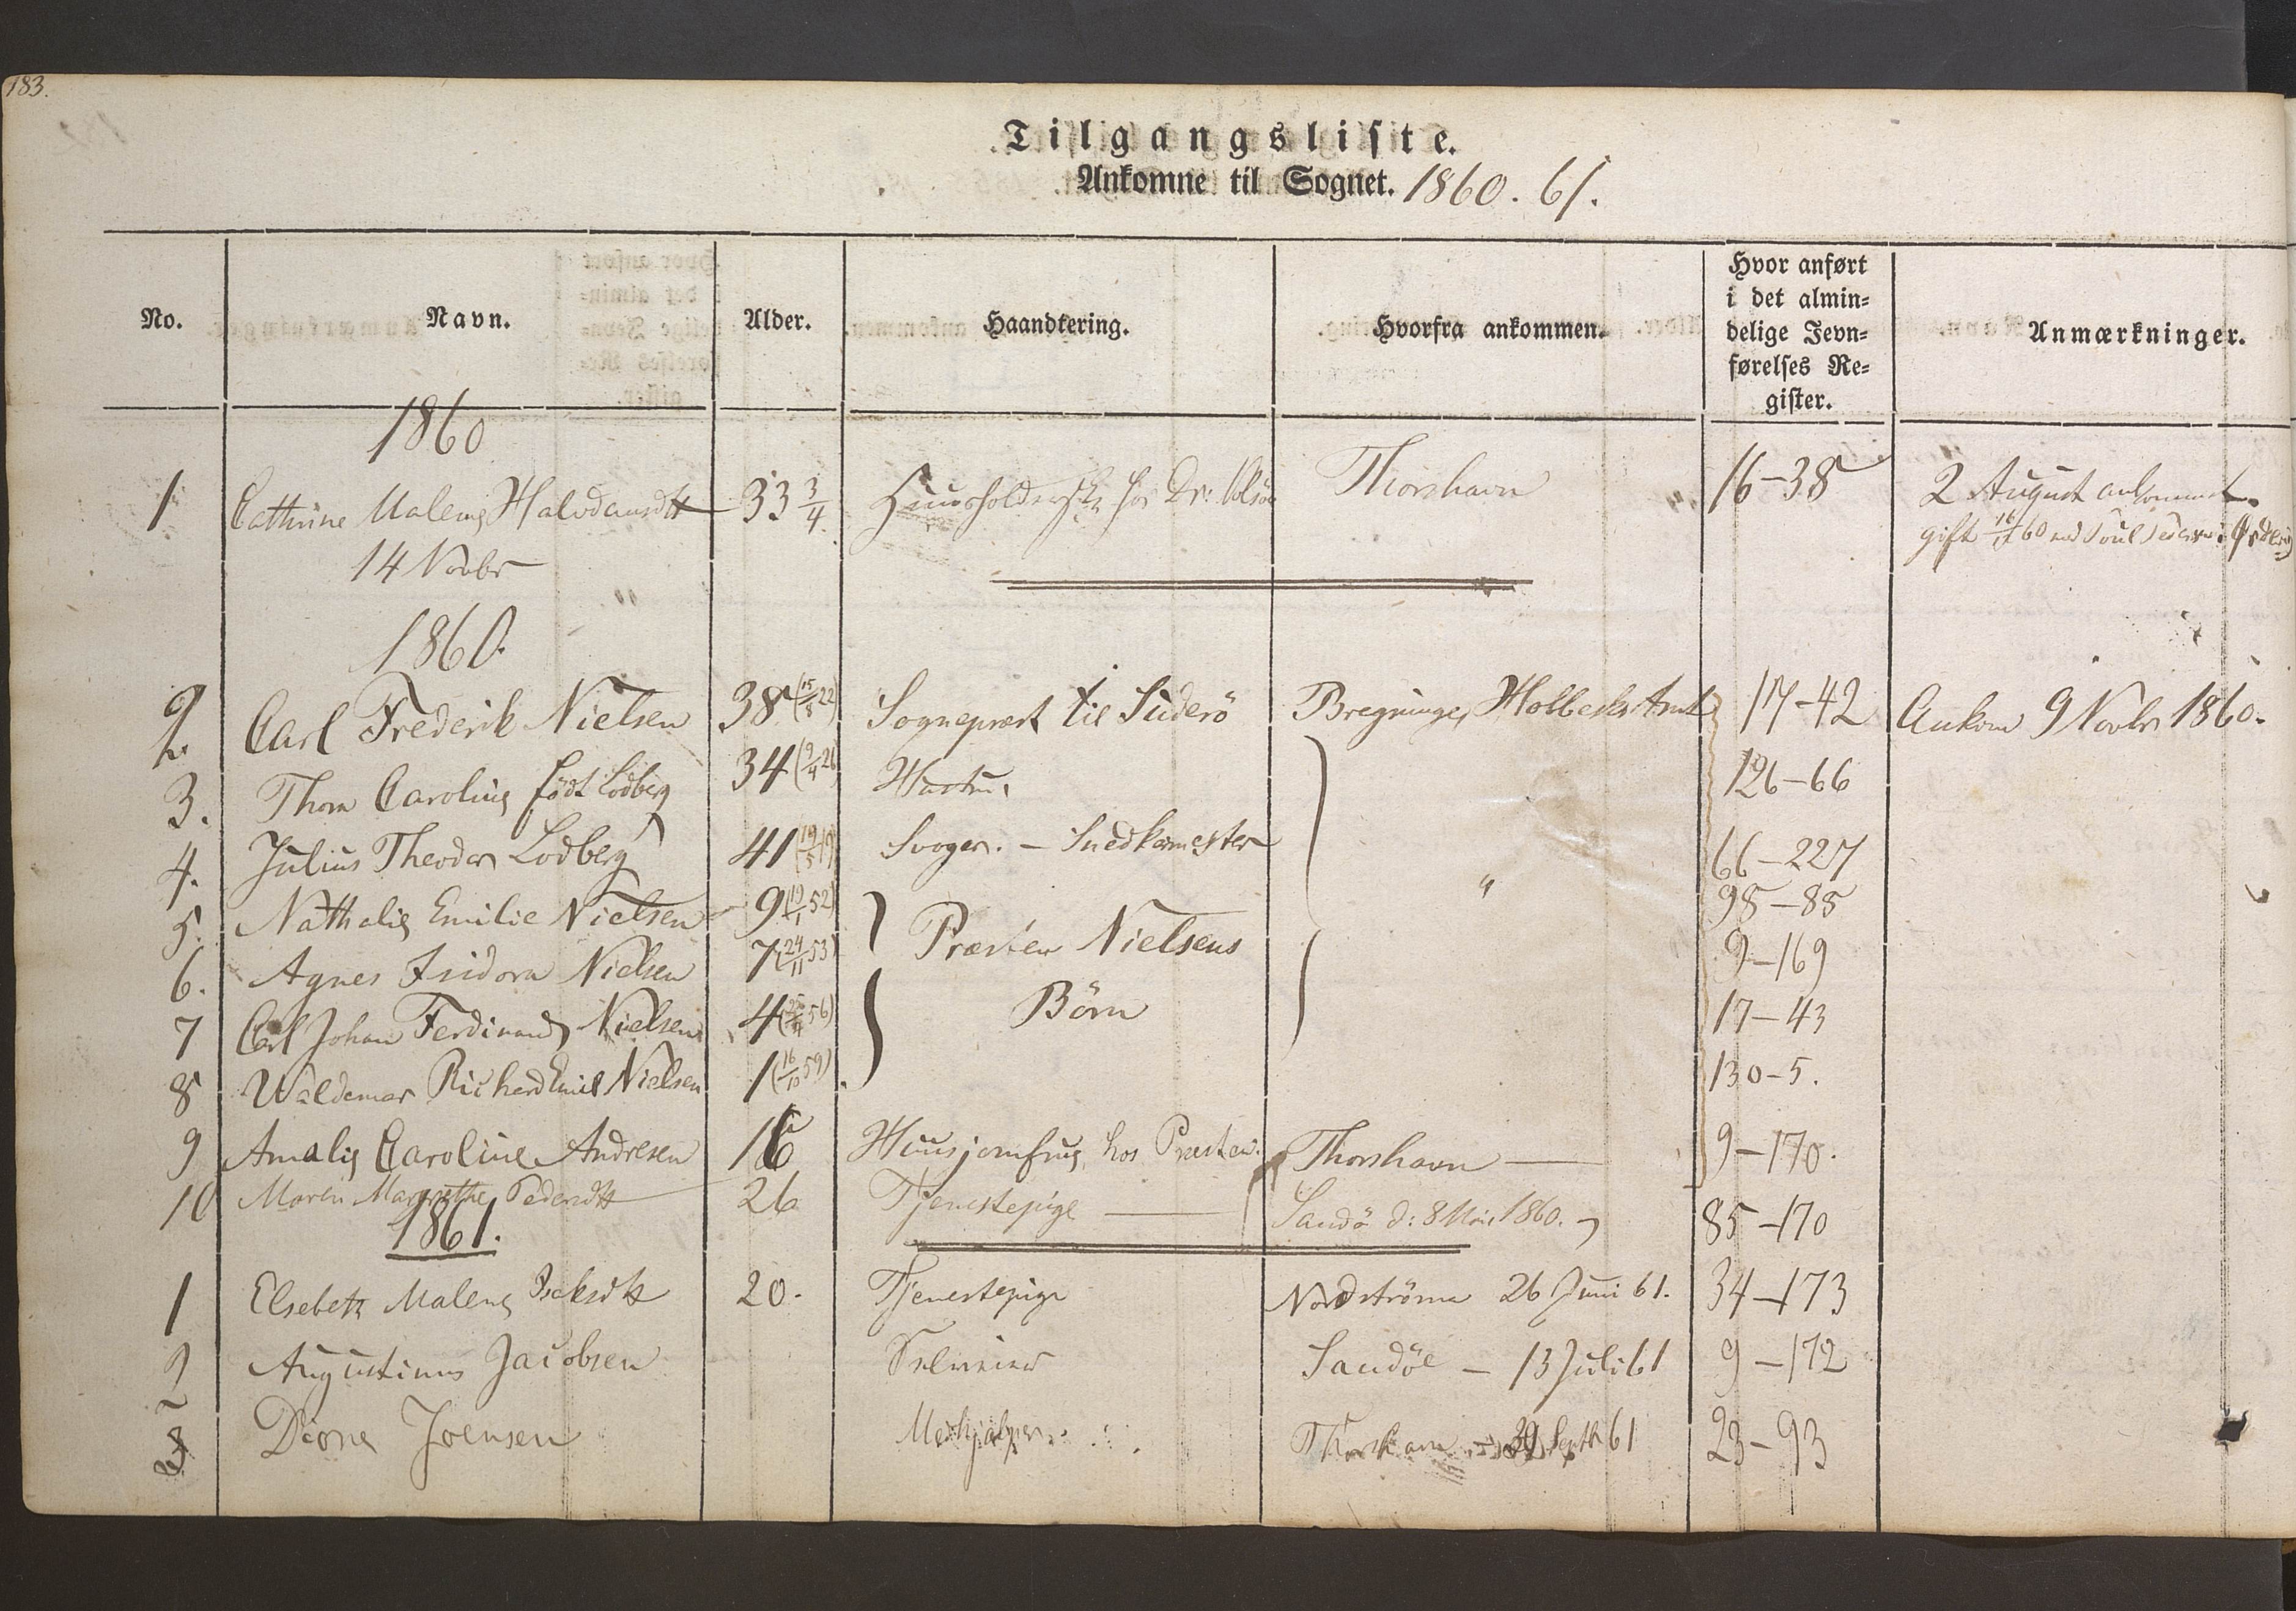 183.
Tilgangsliste.
Ankomne til Sognet. 1860. 61.
No. Navn. Alder. Haandtering. Hvorfra ankommen. Hvor anført i det almindelige Jevnførelses Register. Anmærkninger.
1860
1 Cathrine Malene Halvdansdtt 33 3/4 Huusholderske hos Dr: Thorshavn 16-38 2 August ankommet.
gift 60 med Poul
14 Novbr
1860.
2. Carl Frederik Nielsen 38 (15/8 22) Sognepræst til Süderö Bregninge, Holbeks Amt 17-42 Ankom 9 Novbr 1860.
3. Thora Caroline født Lodberg 34 (9/4 26) Hustru. 126-66
4. Julius Theodor Lodberg 41 (19/5 19) Svoger. - Snedkermester " 66-227
5. Nathalie Emilie Nielsen 9 (19/1 52) 98-85
6. Agnes Isidora Nielsen 7 (24/11 53) Præsten Nielsens 9-169
7 Carl Johan Ferdinand Nielsen 4 (25/4 56) Börn 17-43
8 Waldemar Richard Emil Nielsen 1 (16/10 59). 130-5.
9 Amalie Caroline Andresen 16 Huusjomfrue hos Præsten. Thorshavn — 9-170.
10 Maren Margrethe Pedersdtt 26 Tjenestepige — Sandö d: 8 Mai 1860. 85-170
1861.
1 Elsebeth Malene Isaksdtt 20. Tjenestepige Nordströmö 26 Juni 61. 34-173
2 Augustinus Jacobsen Sandöe - 13 Juli 61 9-172
3 Joensen Thorshavn Septb 61 23-93